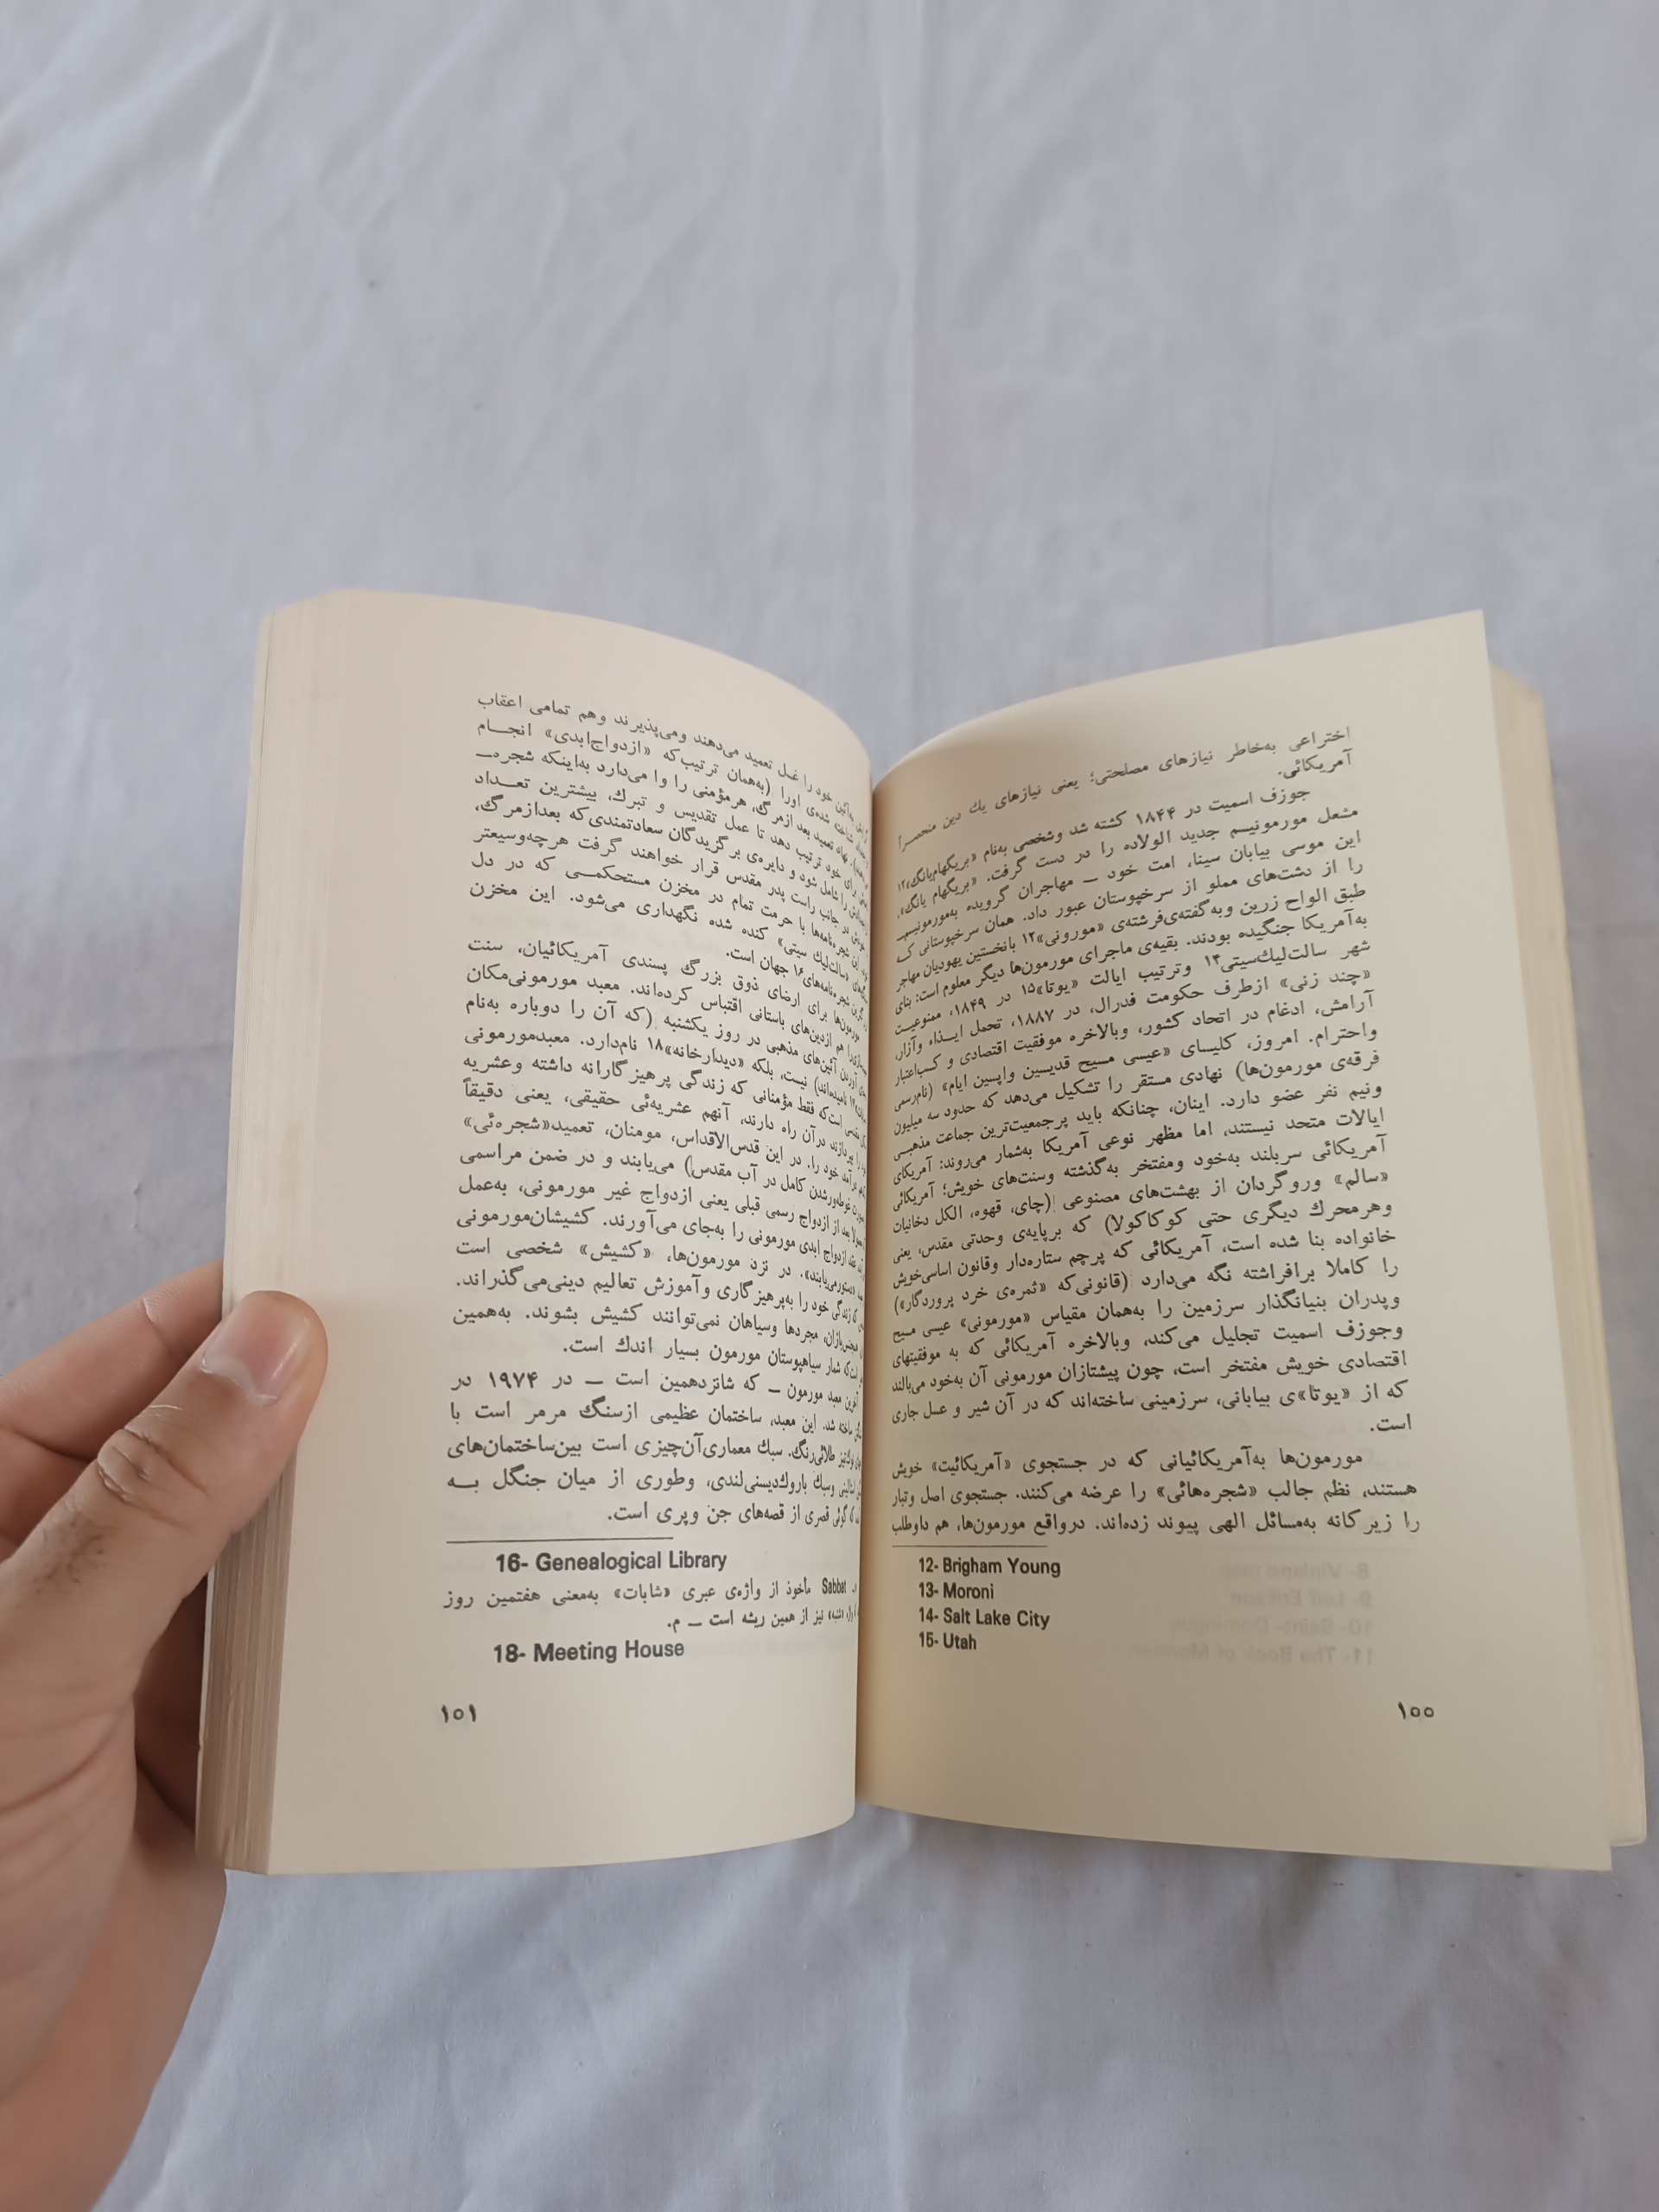 اختراعی به‌خاطر نیازهای مصلحتی؛ یعنی نیازهای یك دین منحصراً
آمریکائی.
جوزف اسمیت در ۱۸۴۴ کشته شد وشخصی به‌نام «بریگهام‌یانگ»۱۲
مشعل مورمونیسم جدید الولاده را در دست گرفت. «بریگهام یانگ»،
این موسی بیابان سینا، امت خود ــ مهاجران گرویده به‌مورمونیسم ــ
را از دشت‌های مملو از سرخپوستان عبور داد. همان سرخپوستانی کـه
طبق الواح زرین وبه‌گفته‌ی‌فرشته‌ی «مورونی»۱۳ بانخستین یهودیان مهاجر
به‌آمریکا جنگیده بودند. بقیه‌ی ماجرای مورمون‌ها دیگر معلوم است: بنای
شهر سالت‌لیك‌سیتی۱۴ وترتیب ایالت «یوتا»۱۵ در ۱۸۴۹، ممنوعیت
«چند زنی» ازطرف حکومت فدرال، در ۱۸۸۷، تحمل ایـذاء وآزار،
آرامش، ادغام در اتحاد کشور، وبالاخره موفقیت اقتصادی و کسب‌اعتبار
واحترام. امروز، کلیسای «عیسی مسیح قدیسین واپسین ایام» (نام‌رسمی
فرقه‌ی مورمون‌ها) نهادی مستقر را تشکیل می‌دهد که حدود سه میلیون
ونیم نفر عضو دارد. اینان، چنانکه باید پرجمعیت‌ترین جماعت مذهبـی
ایالات متحد نیستند، اما مظهر نوعی آمریکا به‌شمار می‌روند: آمریکای
آمریکائی سربلند به‌خود ومفتخر به‌گذشته وسنت‌های خویش؛ آمریکائی
«سالم» وروگردان از بهشت‌های مصنوعی (چای، قهوه، الکل دخانیات
وهرمحرك دیگری حتی کوکاکولا) که برپایه‌ی وحدتی مقدس، یعنی
خانواده بنا شده است، آمریکائی که پرچم ستاره‌دار وقانون اساسی‌خویش
را کاملا برافراشته نگه می‌دارد (قانونی‌که «ثمره‌ی خرد پروردگار»)
وپدران بنیانگذار سرزمین را به‌همان مقیاس «مورمونی» عیسی مسیح
وجوزف اسمیت تجلیل می‌کند، وبالاخره آمریکائی که به موفقیتهای
اقتصادی خویش مفتخر است، چون پیشتازان مورمونی آن به‌خود می‌بالند
که از «یوتا»ی بیابانی، سرزمینی ساخته‌اند که در آن شیر و عسل جاری
است.
مورمون‌ها به‌آمریکائیانی که در جستجوی «آمریکائیت» خویش
هستند، نظم جالب «شجره‌هائی» را عرضه می‌کنند. جستجوی اصل وتبار
را زیرکانه به‌مسائل الهی پیوند زده‌اند. درواقع مورمون‌ها، هم داوطلب
12- Brigham Young
13- Moroni
14- Salt Lake City
15- Utah
۱۰۰
خود را غسل تعمید می‌دهند ومی‌پذیرند وهم تمامی اعقاب
شناخته شده‌ی اورا (به‌همان ترتیب‌که «ازدواج‌ابدی» انجـام
تعمید بعد ازمرگ، هرمؤمنی را وا می‌دارد به‌اینکه شجره‌ــ
برای خود ترتیب دهد تا عمل تقدیس و تبرك، بیشترین تعـداد
را شامل شود و دایره‌ی برگزیدگان سعادتمندی‌که بعدازمرگ،
در جانب راست پدر مقدس قرار خواهند گرفت هرچه‌وسیعتر
این شجره‌نامه‌ها با حرمت تمام در مخزن مستحکمـی که در دل
«سالت‌لیك سیتی» کنده شده نگهداری می‌شود. این مخزن
شجره‌نامه‌های۱۶ جهان است.
مورمون‌ها برای ارضای ذوق بزرگ پسندی آمریکائیان، سنت
را هم ازدین‌های باستانی اقتباس کرده‌اند. معبد مورمونی‌مکان
آوردن آئین‌های مذهبی در روز یکشنبه (که آن را دوباره به‌نام
نامیده‌اند) نیست، بلکه «دیدارخانه»۱۸ نام‌دارد. معبدمورمونی
است‌که فقط مؤمنانی که زندگی پرهیزگارانه داشته وعشریه
بپردازند درآن راه دارند، آنهم عشریه‌ئی حقیقی، یعنی دقیقاً
درآمد خود را. در این قدس‌الاقداس، مومنان، تعمید«شجره‌ئی»
غوطه‌ورشدن کامل در آب مقدس) می‌یابند و در ضمن مراسمی
بعد از ازدواج رسمی قبلی یعنی ازدواج غیر مورمونی، به‌عمل
عقد ازدواج ابدی مورمونی را به‌جای می‌آورند. کشیشان‌مورمونی
در نزد مورمون‌ها، «کشیش» شخصی است
که زندگی خود را به‌پرهیزگاری وآموزش تعالیم دینی‌می‌گذراند.
مجردها وسیاهان نمی‌توانند کشیش بشوند. به‌همین
است‌که شمار سیاهپوستان مورمون بسیار اندك است.
آخرین معبد مورمون ــ که شانزدهمین است ــ در ۱۹۷۴ در
ساخته شد. این معبد، ساختمان عظیمی ازسنگ مرمر است با
طلائی‌رنگ. سبك معماری‌آن‌چیزی است بین‌ساختمان‌های
وسبك باروك‌دیسنی‌لندی، وطوری از میان جنگل بــه
که گوئی قصری از قصه‌های جن وپری است.
16- Genealogical Library
Sabbat مأخوذ از واژه‌ی عبری «شابات» به‌معنی هفتمین روز
نیز از همین ریشه است ــ م.
18- Meeting House
۱۰۱